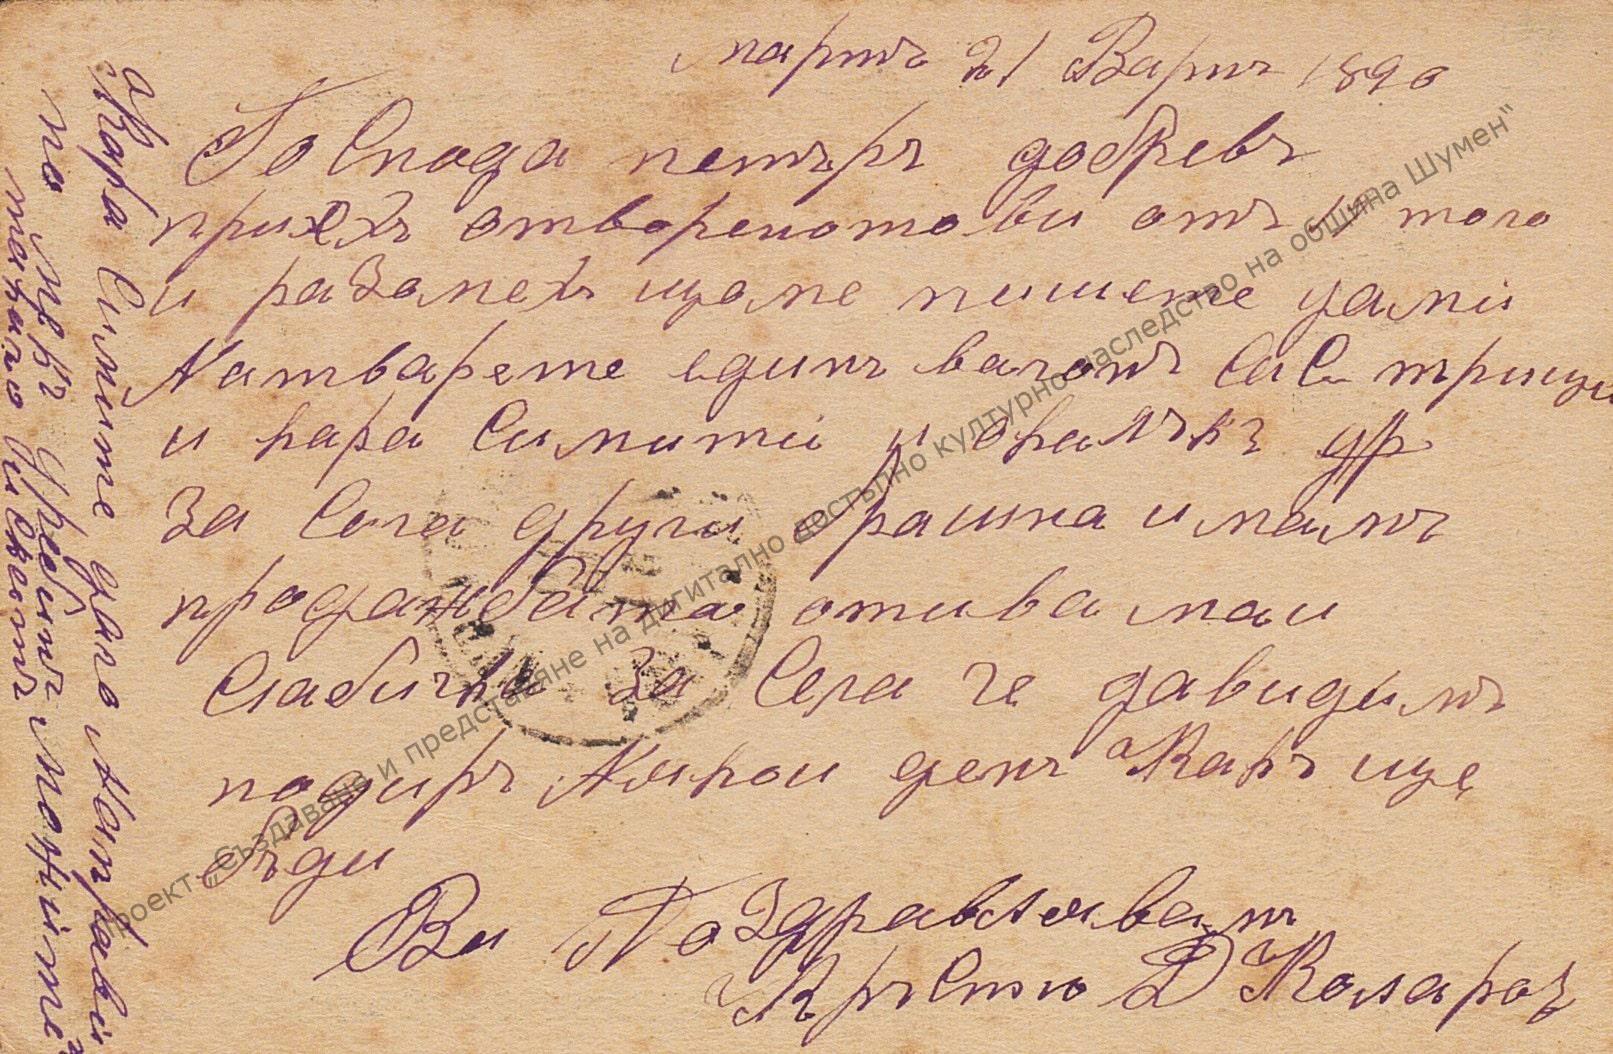 мартъ 21 Варнъ 1890
Го Спода петъръ добревъ
приехъ отвореното ви отъ 17 того
и разамехъ щоме пишете
Натварете единъ вагонъ СаС трици
и кара Симити и
За Сега други рашна имамъ
продажбата отива маи
Слабичка За Сега че давидимъ
подиръ някои денъ Какъ ще
бъди
Ви ПоЗдравлявамъ
Кръстю Д Коларов
Кара Симите Направи
по
Проект „Създаване и представяне на дигитално достъпно културно наследство на община Шумен"